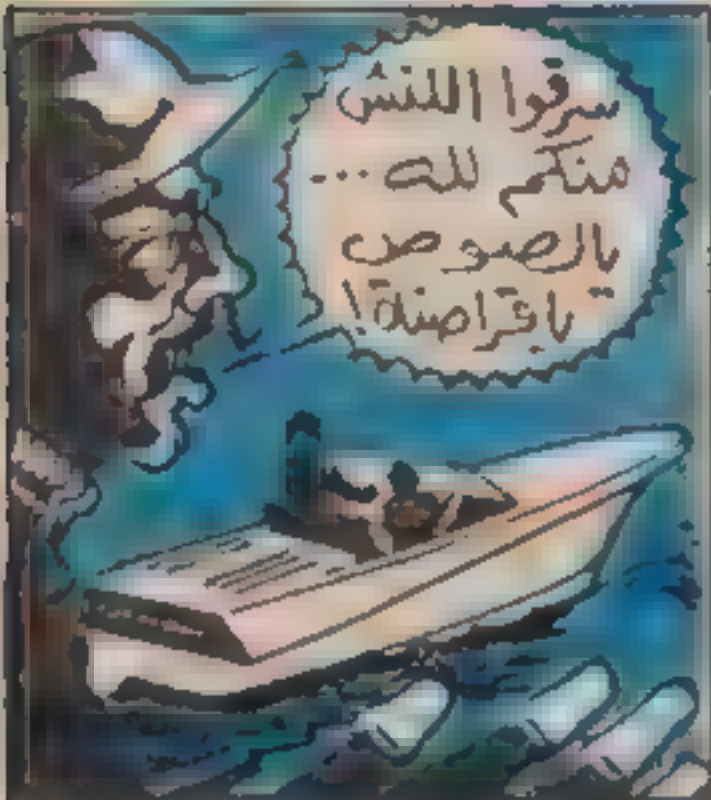 سرقوا اللنش
منكم لله ...
يالصوص
ياقراصنة!